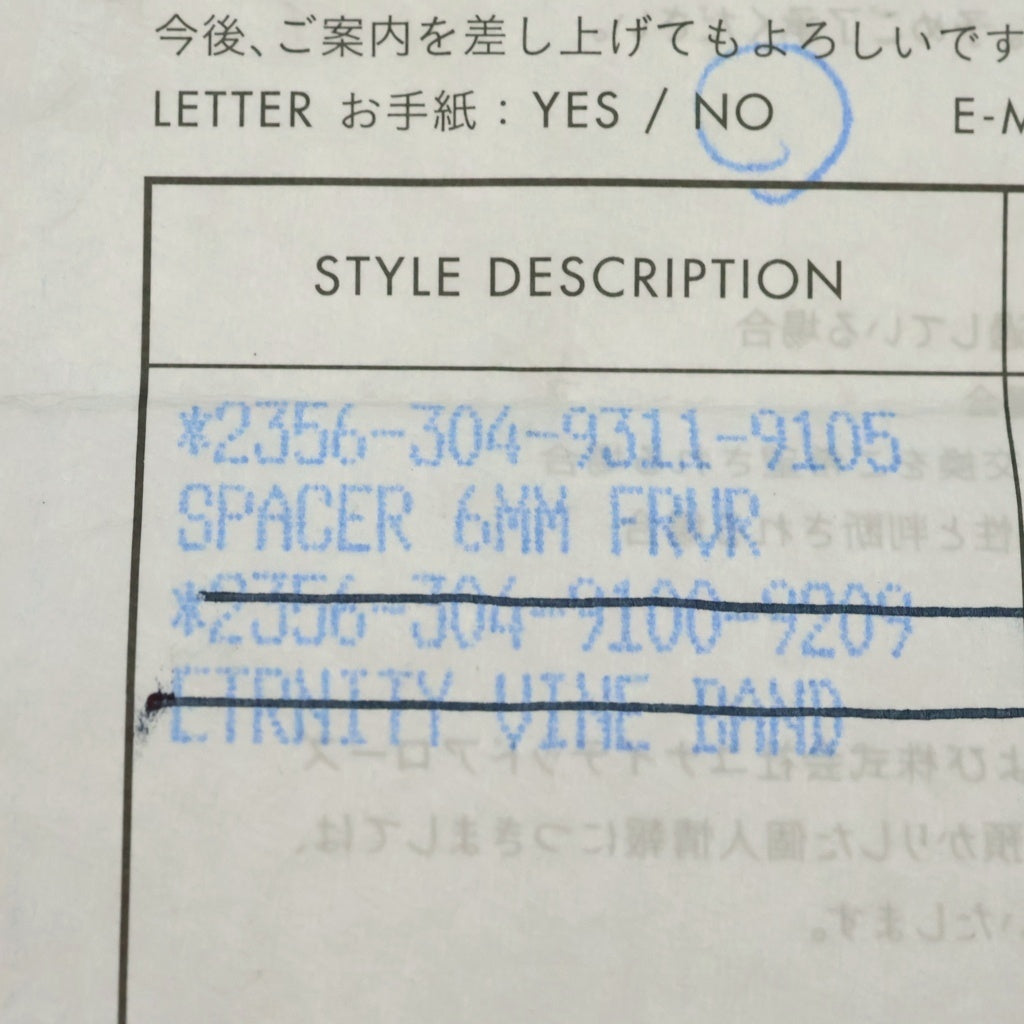 今後、ご案内を差し上げてもよろしいです
LETTER お手紙 : YES / NO E-M
STYLE DESCRIPTION
*2356-304-9311-9105
SPACER 6MM FRVR
*2356-304-9100-9209
ETRNITY VINE BAND